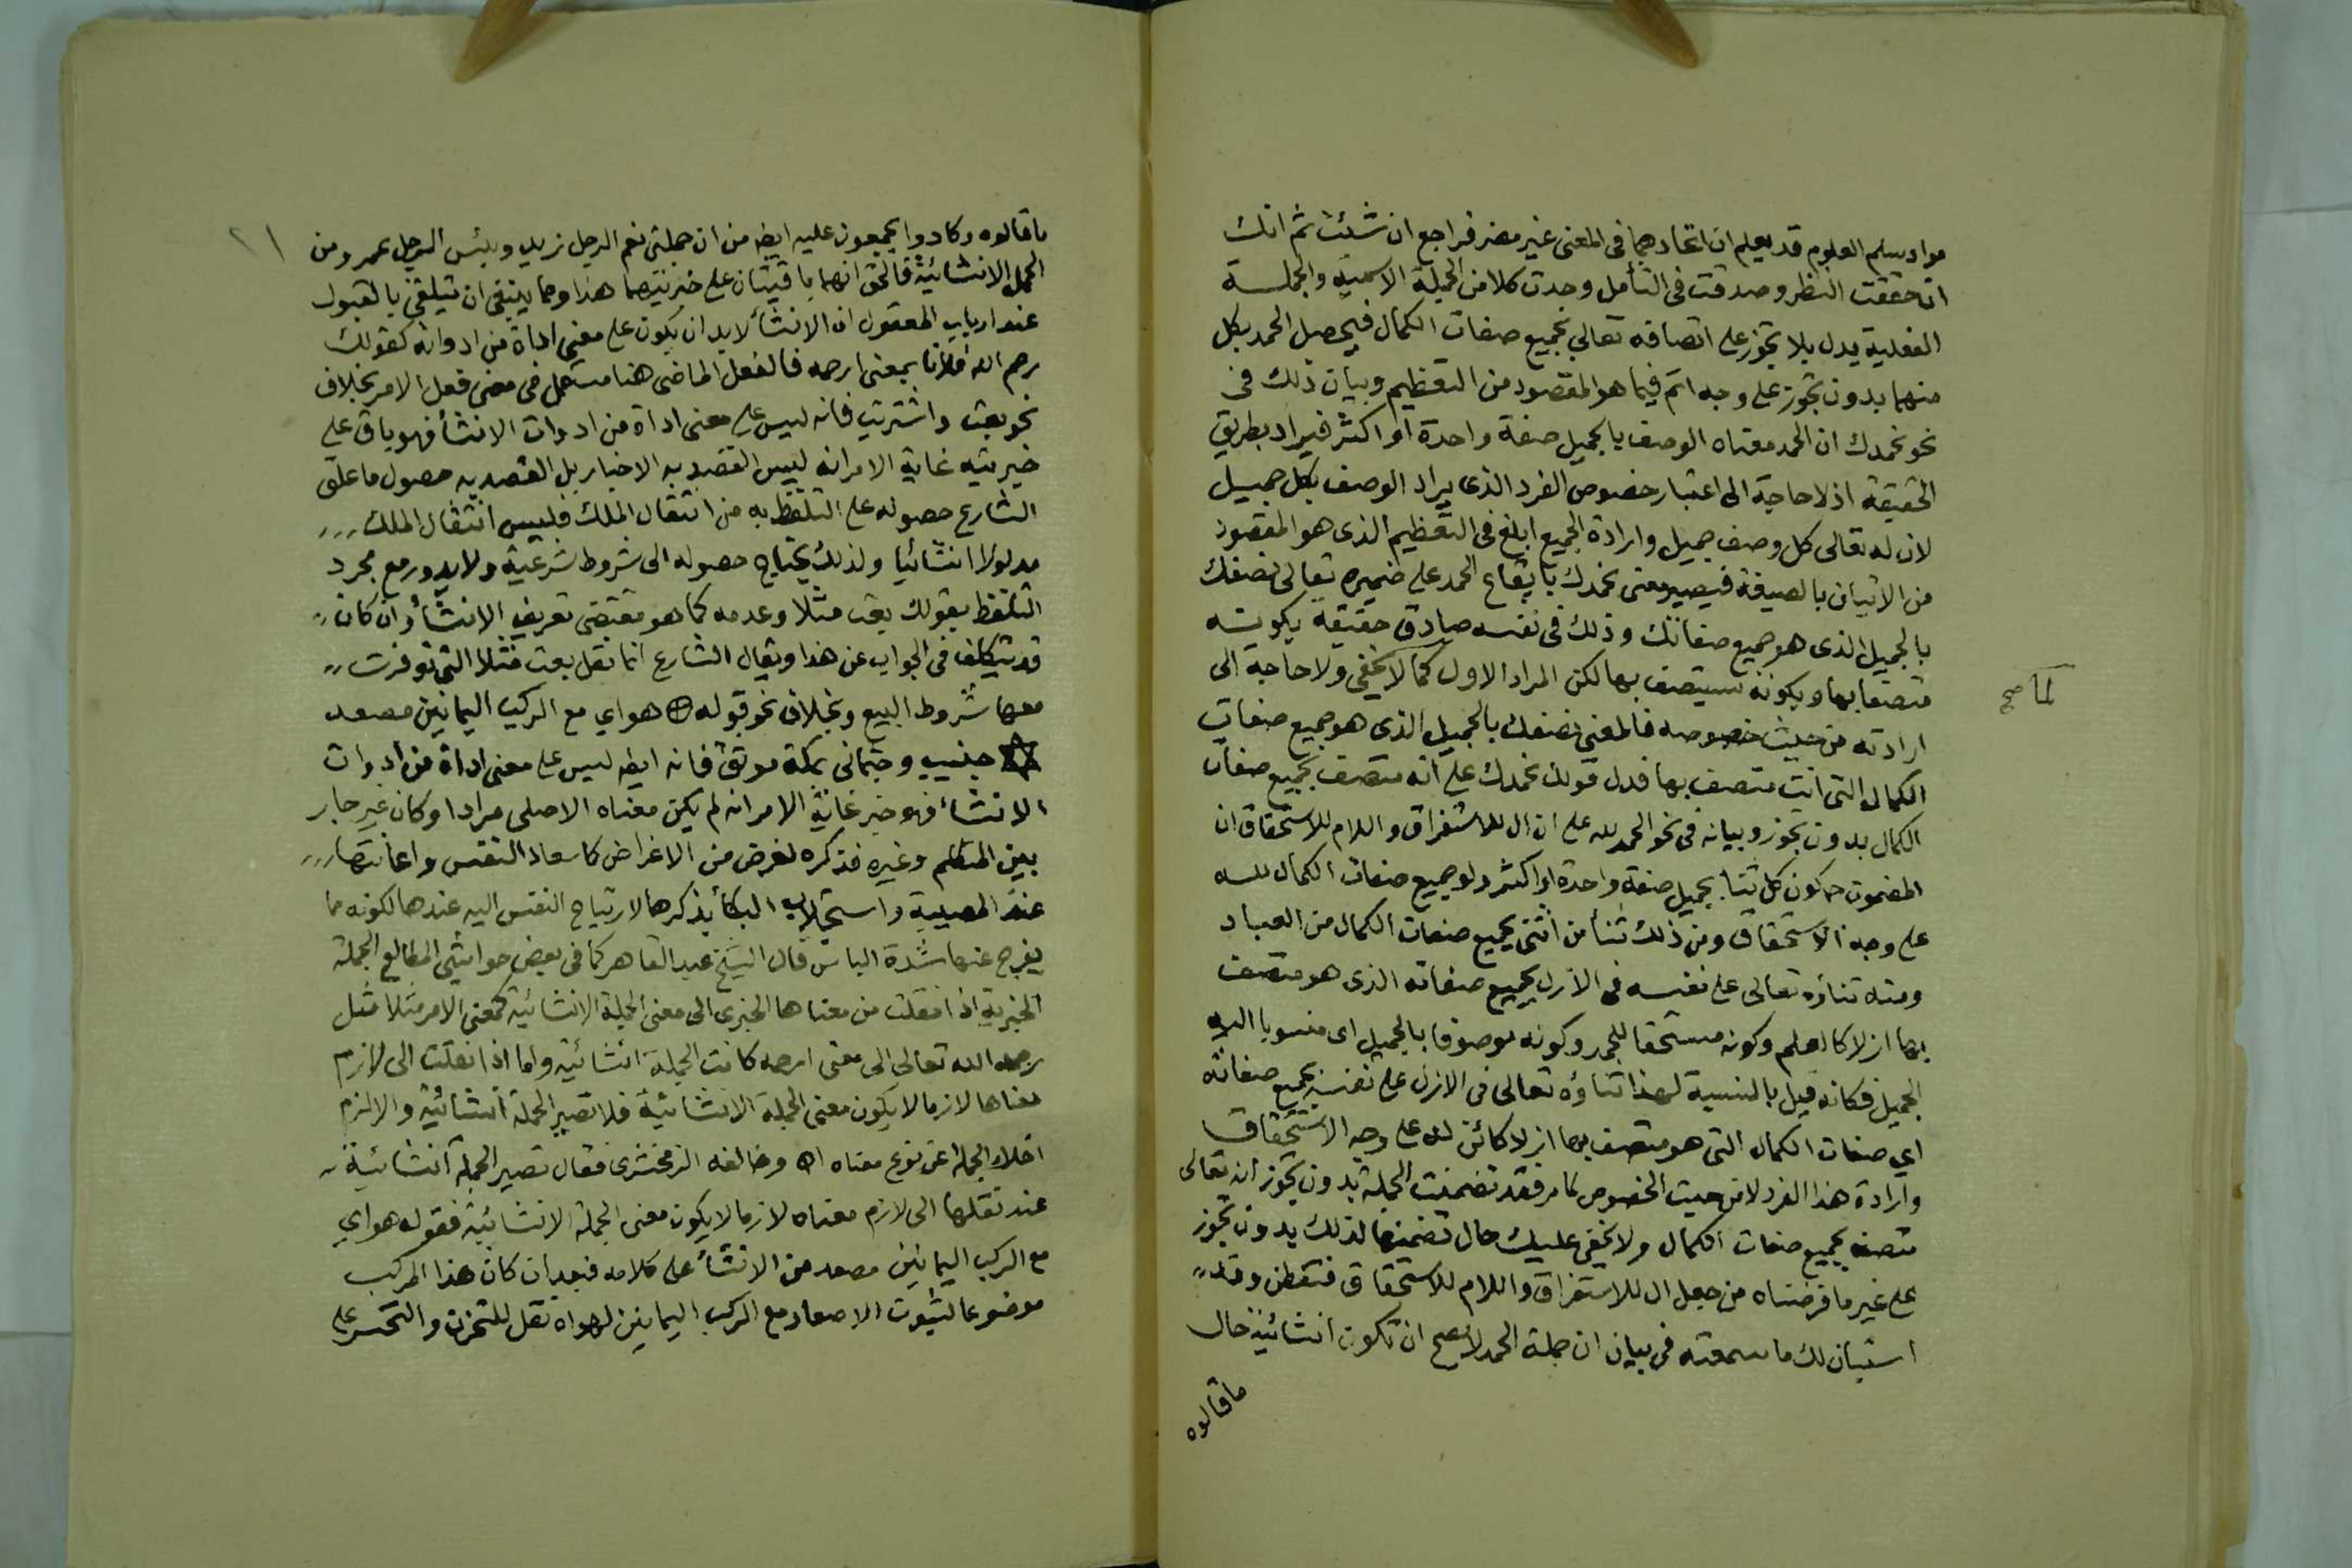 مواد سلم العلوم قد يعلم ان اتحادهما فى المعنى غير مضر فراجع ان شئت ثم انك
ان حققت النظر وصدقت فى التأمل وجدت كلا من الجملة الاسمية والجملة
الفعلية يدل بلا تجوز على اتصافه تعالى بجميع صفات الكمال فيحصل الحمد بكل
منهما بدون تجوز على وجه اتم فيما هو المقصود من التعظيم وبيان ذلك فى
نحو نحمدك ان الحمد معناه الوصف بالجميل صفة واحدة او اكثر فيراد بطريق
الحقيقة اذ لا حاجة الى اعتبار خصوص الفرد الذى يراد الوصف بكل جميل
لان له تعالى كل وصف جميل وارادة الجميع ابلغ فى التعظيم الذى هو المقصود
من الاتيان بالصيغة فيصير معنى نحمدك بايقاع الحمد على ضميره تعالى نصفك
بالجميل الذى هو جميع صفاتك وذلك فى نفسه صادق حقيقة بكونه
متصفا بها وبكونه سيتصف بها لكن المراد الاول كما لا يخفى ولا حاجة الى
لما صح
ارادته من حيث خصوصه فالمعنى نصفك بالجميل الذى هو جميع صفات
الكمال التى انت متصف بها فدل قولك نحمدك على انه متصف بجميع صفات
الكمال بدون تجوز وبيانه فى نحو الحمد لله على ان ال للاستغراق واللام للاستحقاق ان
المضمون ح كون كل ثنا بجميل صفة واحدة او اكثر ولو جميع صفات الكمال لله
على وجه الاستحقاق ومن ذلك ثنأ من اثنى بجميع صفات الكمال من العباد
ومنه ثناؤه تعالى على نفسه فى الازل بجميع صفاته الذى هو متصف
بها ازلا كالعلم وكونه مستحقا للحمد وكونه موصوفا بالجميل اى منسوبا اليه
الجميل فكانه قيل بالنسبة لهذا ثناؤه تعالى فى الازل على نفسه بجميع صفاته
اي صفات الكمال التى هو متصف بها ازلا كائن له على وجه الاستحقاق
وارادة هذا الفرد لا من حيث الخصوص كما مر فقد تضمنت الجملة بدون تجوز انه تعالى
متصف بجميع صفات الكمال ولا يخفى عليك حال تضمنها لذلك بدون تجوز
على غير ما فرضناه من جعل ال للاستغراق واللام للاستحقاق فتفطن وقد
استبان لك ما سمعته فى بيان ان جملة الحمد لا يصح ان تكون انشائية حال
ما قالوه
٢١
ما قالوه وكادوا يجمعون عليه ايضه من ان جملتى نعم الرجل زيد وبئس الرجل عمرو من
الجمل الانشائية فالحق انهما باقيتان على خبريتهما هذا ومما ينبغى ان يتلقى بالقبول
عند ارباب المعقول ان الانشأ لابد ان يكون على معنى اداة من ادواته كقولك
رحم الله فلانا بمعنى ارحمه فالفعل الماضى هنا مستعمل فى معنى فعل الامر بخلاف
نحو بعت واشتريت فانه ليس على معنى اداة من ادوات الانشأ فهو باق على
خبريته غاية الامر انه ليس القصد به الاخبار بل القصد به حصول ما علق
الشارع حصوله على التلفظ به من انتقال الملك فليس انتقال الملك
مدلولا انشائيا ولذلك يحتاج حصوله الى شروط شرعية ولا يدور مع مجرد
التلفظ بقولك بعت مثلا وعدمه كما هو مقتضى تعريف الانشأ وان كان
قد يتكلف فى الجواب عن هذا ويقال الشارع انما نقل بعت مثلا التى توفرت
معها شروط البيع وبخلاف نحو قوله هواي مع الركب اليمانين مصعد
جنيب وجثمانى بمكة موثق فانه ايضه ليس على معنى اداة من ادوات
الانشأ فهو خبر غاية الامر انه لم يكن معناه الاصلى مرادا وكان غير جار
بين المتكلم وغيره فذكره لغرض من الاغراض كاسعاد النفس واعانتها
عند المصيبة واستجلاب البكأ بذكرها لارتياح النفس اليه عندها لكونه مما
يفرج عنها شدة الباس قال الشيخ عبد القاهر كما فى بعض حواشى المطالع الجملة
الخبرية اذا نقلت من معناها الخبرى الى معنى الجملة الانشائية كمعنى الامر مثلا مثل
رحمه الله تعالى الى معنى ارحمه كانت الجملة انشائية واما اذا نقلت الى لازم
معناها لازما لا يكون معنى الجملة الانشائية فلا تصير الجملة انشائية والا لزم
اخلاء الجملة عن نوع معناه اه وخالفه الزمخشرى فقال تصير الجملة انشائية
عند نقلها الى لازم معناه لازما لا يكون معنى الجملة الانشائية فقوله هواي
مع الركب اليمانين مصعد من الانشأ على كلامه فبعد ان كان هذا المركب
موضوعا لثبوت الاصعاد مع الركب اليمانين لهواه نقل للتحزن والتحسر على